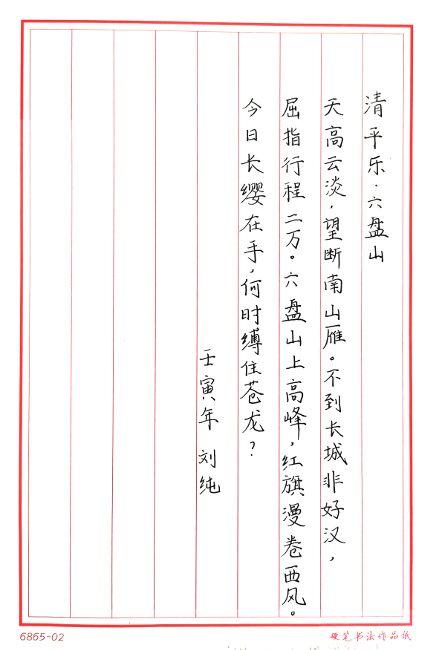 清平乐·六盘山
天高云淡，望断南山雁。不到长城非好汉，
屈指行程二万。六盘山上高峰，红旗漫卷西风。
今日长缨在手，何时缚住苍龙？
壬寅年 刘纯
6865-02
硬笔书法作品纸